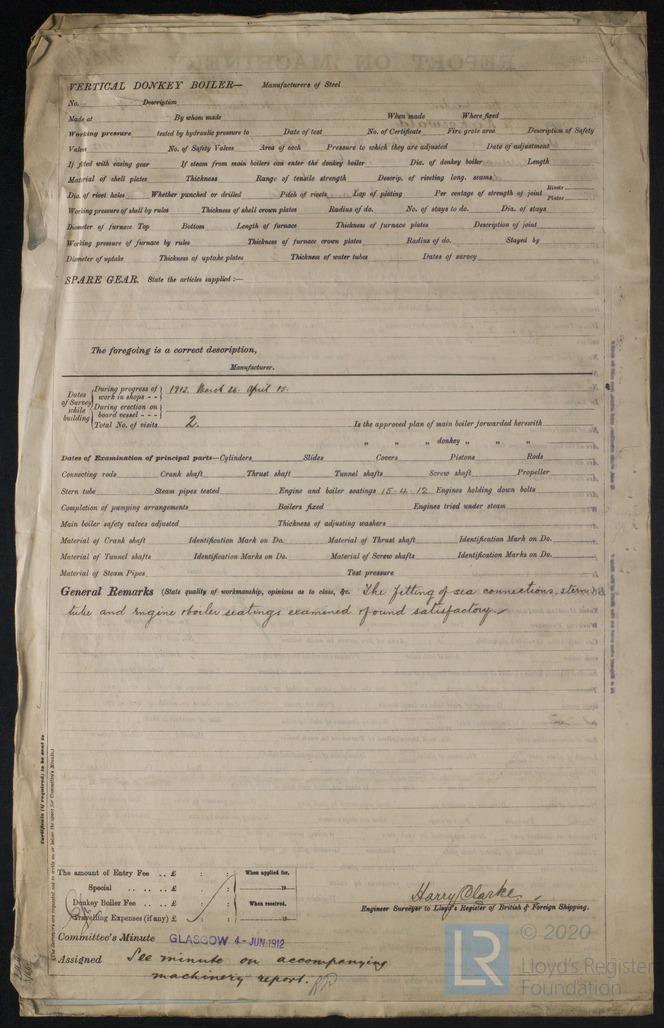 VERTICAL DONKEY BOILER— Manufacturers of Steel
No. Description
Made at By whom made When made Where fixed
Working pressure tested by hydraulic pressure to Date of test No. of Certificate Fire grate area Description of Safety
Valves No. of Safety Valves Area of each Pressure to which they are adjusted Date of adjustment
If fitted with easing gear If steam from main boilers can enter the donkey boiler Dia. of donkey boiler Length
Material of shell plates Thickness Range of tensile strength Descrip. of riveting long. seams
Dia. of rivet holes Whether punched or drilled Pitch of rivets Lap of plating Per centage of strength of joint Rivets Plates
Working pressure of shell by rules Thickness of shell crown plates Radius of do. No. of stays to do. Dia. of stays
Diameter of furnace Top Bottom Length of furnace Thickness of furnace plates Description of joint
Working pressure of furnace by rules Thickness of furnace crown plates Radius of do. Stayed by
Diameter of uptake Thickness of uptake plates Thickness of water tubes Dates of survey
SPARE GEAR. State the articles supplied :—
The foregoing is a correct description,
Manufacturer.
Dates of Survey while building
During progress of work in shops - - 1912. March 26. April 15.
During erection on board vessel - - -
Total No. of visits 2. Is the approved plan of main boiler forwarded herewith
" " " donkey " " "
Dates of Examination of principal parts—Cylinders Slides Covers Pistons Rods
Connecting rods Crank shaft Thrust shaft Tunnel shafts Screw shaft Propeller
Stern tube Steam pipes tested Engine and boiler seatings 15-4-12 Engines holding down bolts
Completion of pumping arrangements Boilers fixed Engines tried under steam
Main boiler safety valves adjusted Thickness of adjusting washers
Material of Crank shaft Identification Mark on Do. Material of Thrust shaft Identification Mark on Do.
Material of Tunnel shafts Identification Marks on Do. Material of Screw shafts Identification Marks on Do.
Material of Steam Pipes Test pressure
General Remarks (State quality of workmanship, opinions as to class, &c. The fitting of sea connections, stern
tube and engine & boiler seatings examined & found satisfactory.
Certificate (if required) to be sent to
The amount of Entry Fee .. £ : : When applied for,
Special .. .. .. £ : : 19
Donkey Boiler Fee .. .. £ : : When received,
Travelling Expenses (if any) £ : : 19
Harry Clarke
Engineer Surveyor to Lloyd's Register of British & Foreign Shipping.
Committee's Minute GLASGOW 4-JUN.1912
Assigned See minute on accompanying
machinery report.
LR
© 2020
Lloyd's Register
Foundation